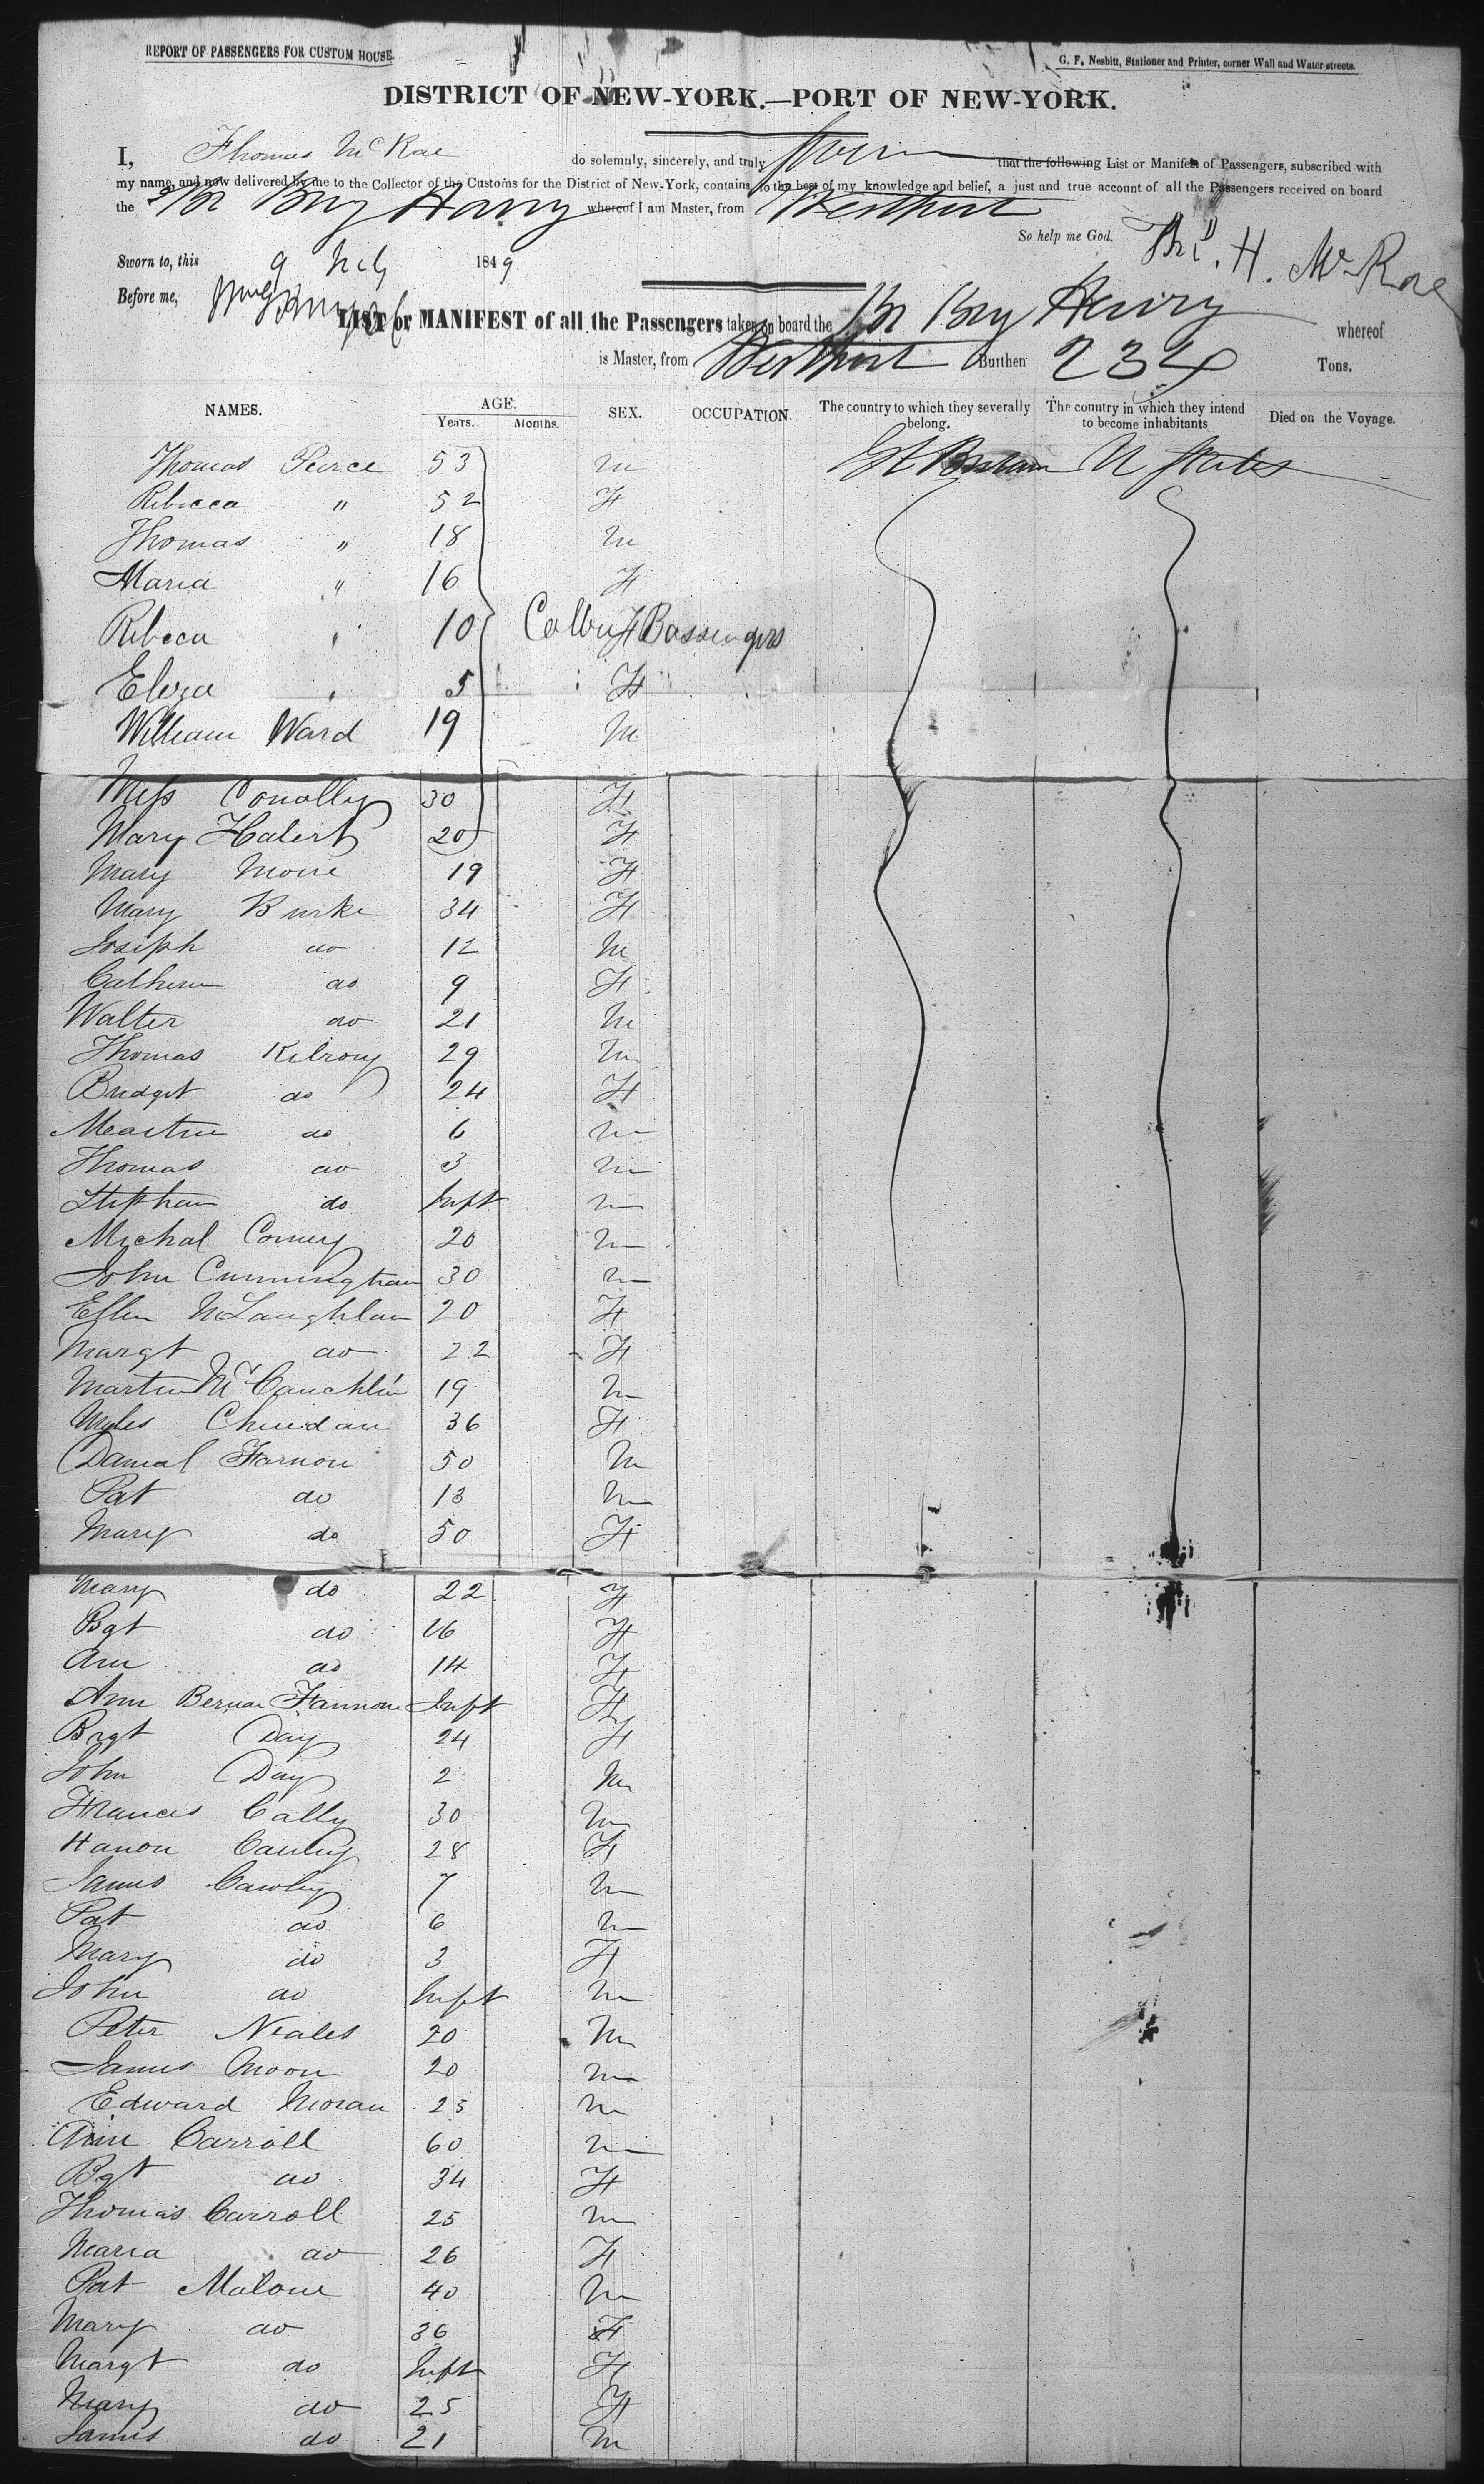 REPORT OF PASSENGERS FOR CUSTOM HOUSE.
G. F. Nesbitt, Stationer and Printer, corner Wall and Water streets.
DISTRICT OF NEW-YORK.—PORT OF NEW-YORK.
I, Thomas McRae do solemnly, sincerely, and truly swear that the following List or Manifest of Passengers, subscribed with
my name, and now delivered by me to the Collector of the Customs for the District of New-York, contains, to the best of my knowledge and belief, a just and true account of all the Passengers received on board
the Br Brig Harry whereof I am Master, from Westport
So help me God. Thos. H. McRae
Sworn to, this 9 July 1849
Before me,
LIST or MANIFEST of all the Passengers taken on board the Br Brig Harry whereof
is Master, from Westport Burthen 234 Tons.
NAMES. AGE. SEX. OCCUPATION. The country to which they severally belong. The country in which they intend to become inhabitants Died on the Voyage.
Years. Months.
Thomas Peirce 53 M Gt Britain U States
Rebecca " 52 F
Thomas " 18 M
Maria " 16 F
Rebeca " 10 F Cabin Passengers
Eliza " 5 F
William Ward 19 M
Miss Conolly 30 F
Mary 20 F
Mary Moore 19 F
Mary Burke 34 F
Joseph do 12 M
Catherine do 9 F
Walter do 21 M
Thomas Kilroy 29 M
Bridget do 24 F
Martin do 6 M
Thomas do 3 M
Stephen do Inft M
Michal 20 M
John Cunningham 30 M
Ellen McLaughlan 20 F
Margt do 22 F
Martin 19 M
Myles 36 F
Danial Fannon 50 M
Pat do 13 M
Mary do 50 F
Mary do 22 F
Bgt do 16 F
Ann do 14 F
Ann Fannon Inft F
Brgt Day 24 F
John Day 2 M
Francis Cally 30 M
Hanon Cauley 28 F
James Cawley 7 M
Pat do 6 M
Mary do 3 F
John do Inft M
Peter Neales 20 M
James Moon 20 M
Edward Moran 25 M
Ann Carroll 60 M
Bgt do 34 F
Thomas Carroll 25 M
Maria do 26 F
Pat Malone 40 M
Mary do 36 F
Margt do Inft F
Mary do 25 F
James do 21 M